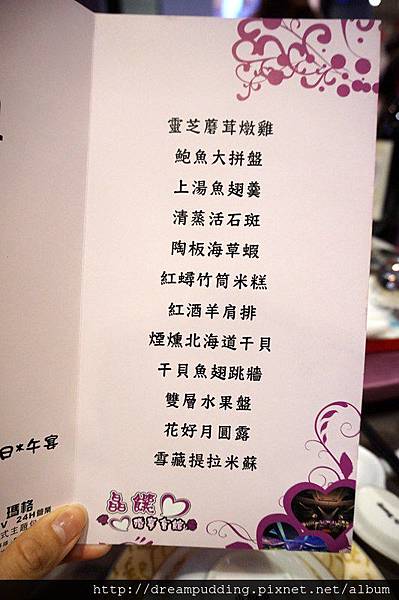 靈芝蘑茸燉雞
鮑魚大拼盤
上湯魚翅羹
清蒸活石斑
陶板海草蝦
紅蟳竹筒米糕
紅酒羊肩排
煙燻北海道干貝
干貝魚翅跳牆
雙層水果盤
花好月圓露
雪藏提拉米蘇
日*午宴
瑪格
24H營業
晶饌
http://dreampudding.pixnet.net/album